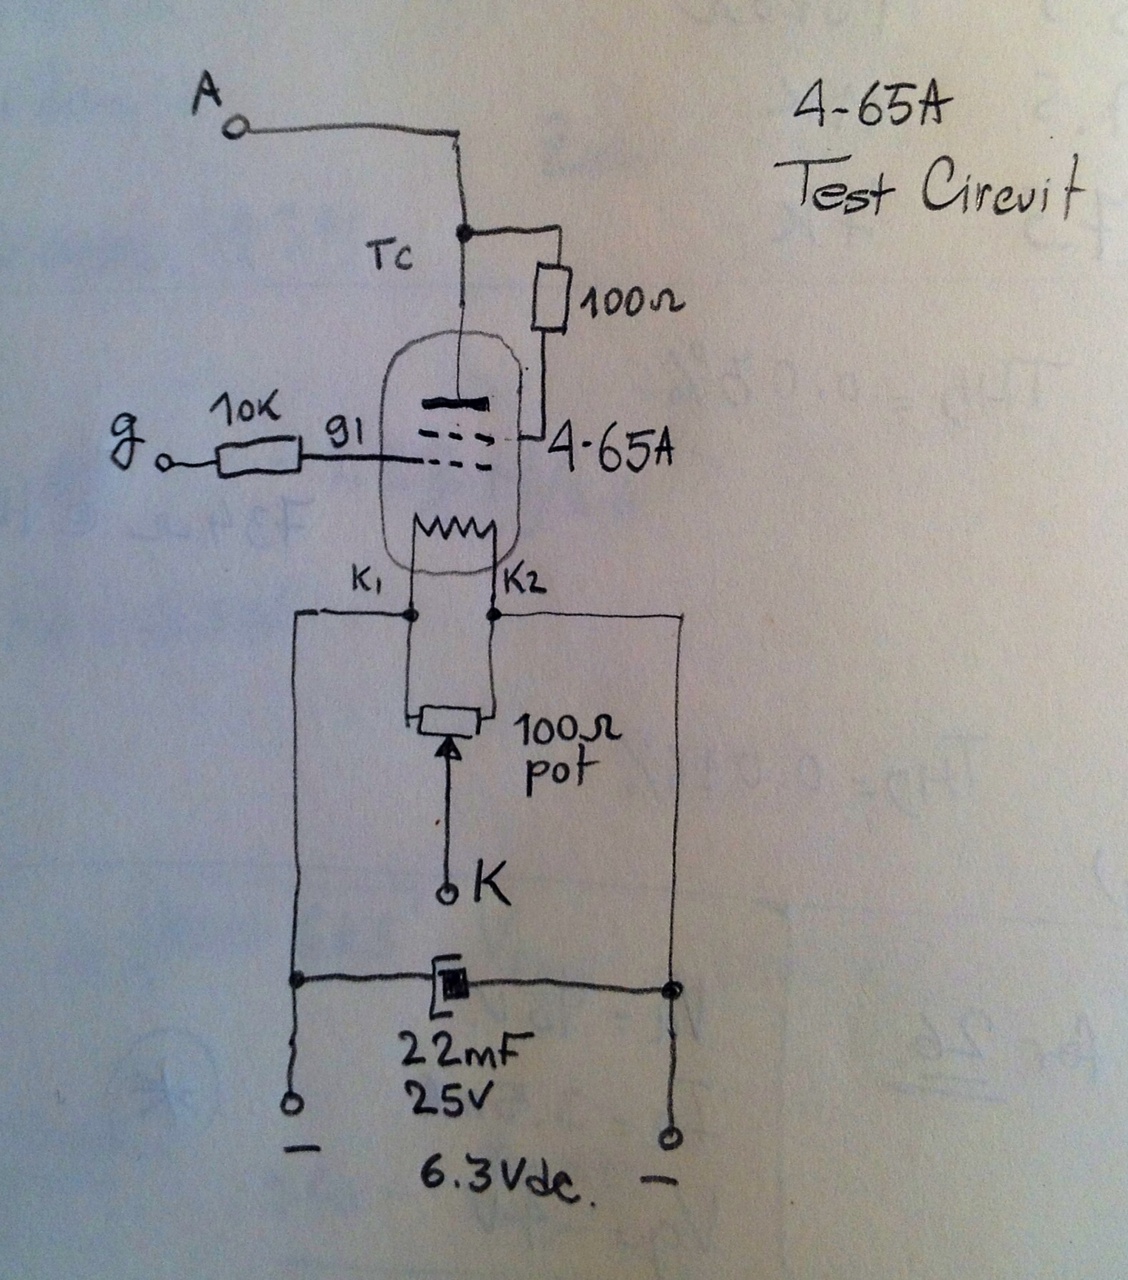 A
4-65A
Test Circuit
Tc
100Ω
10K
g
g1
4-65A
K1
K2
100Ω
pot
K
22mF
25V
6.3Vdc.
—
—